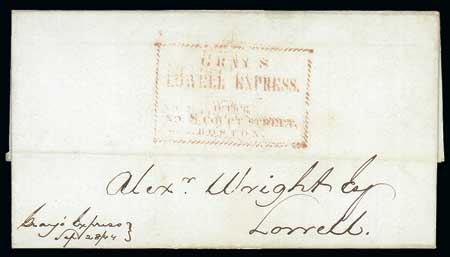 GRAY'S
LOWELL EXPRESS.
OFFICE
No. 8 COURT STREET,
BOSTON.
Alexr Wright Esq
Lowell.
Gray's Express }
Sept 28/44 }